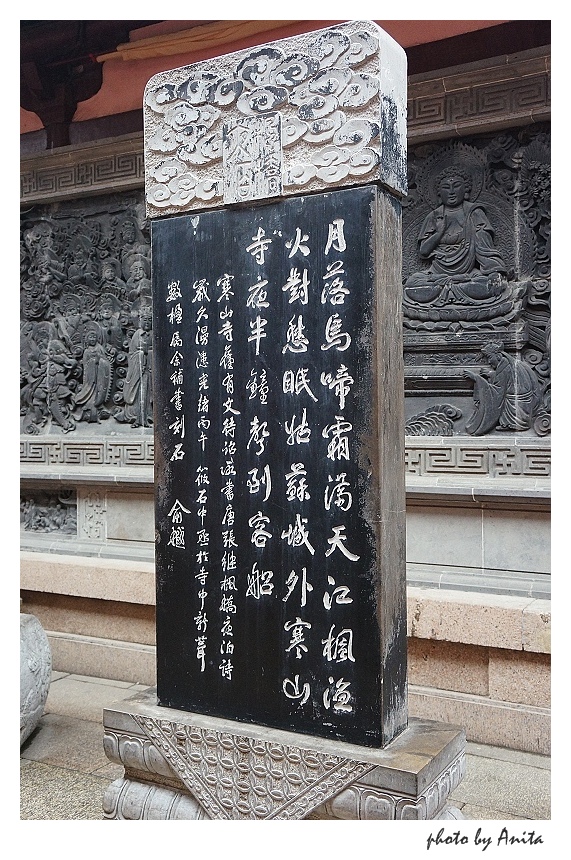 月落烏啼霜滿天江楓漁
火對愁眠姑蘇城外寒山
寺夜半鐘聲到客船
寒山寺舊有文待詔所書唐張繼楓橋夜泊詩
歲久漫漶光緒丙午筱石中丞於寺中新葺
數楹屬余補書刻石 俞樾
photo by Anita